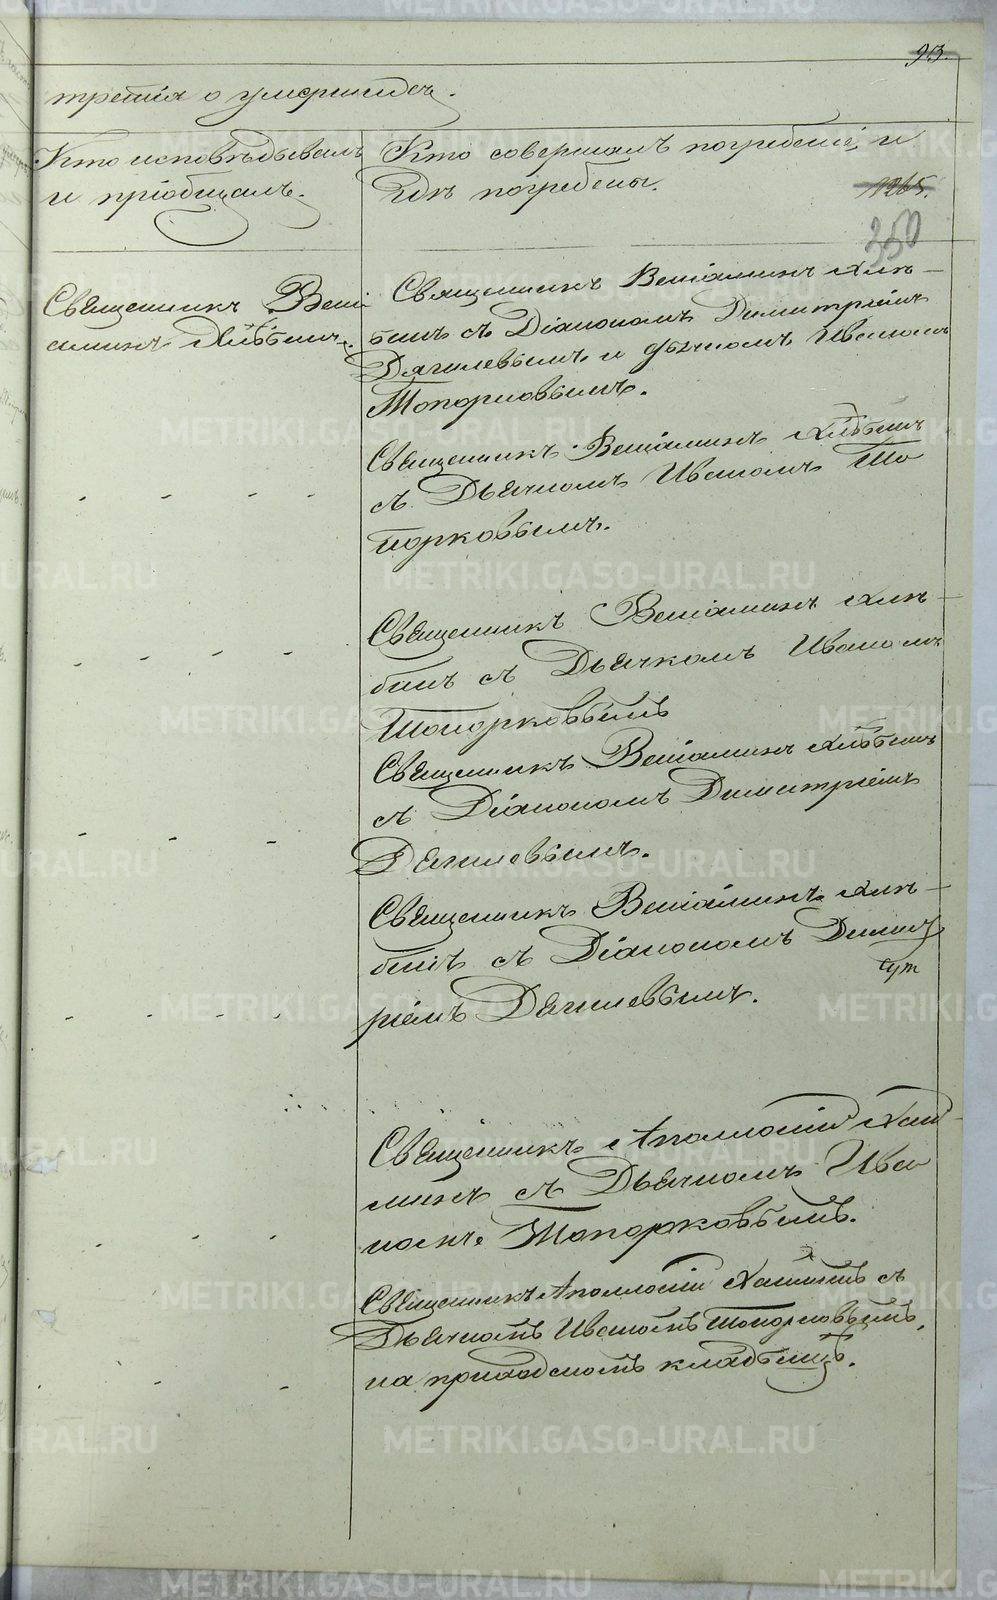 93.
третія о умершихъ.
Кто исповѣдывалъ
и пріобщалъ.
Кто совершалъ погребеніе, и
гдѣ погребены.
1265.
350
Священникъ Вені
аминъ Хлѣбинъ.
Священникъ Веніаминъ Хлѣ-
бинъ съ Діакономъ Димитріемъ
Дягилевымъ и дьячкомъ Иваномъ
Топорковымъ.
Священникъ Веніаминъ Хлѣбинъ
съ Дьячкомъ Иваномъ То
порковымъ.
Священникъ Веніаминъ Хлѣ-
бинъ съ Дьячкомъ Иваномъ
Топорковымъ
Священникъ Веніаминъ Хлѣбинъ
съ Діакономъ Димитріемъ
Дягилевымъ.
Священникъ Веніаминъ Хлѣ-
бинъ съ Діакономъ Димит
ріемъ Дягилевымъ.
Священникъ Аполлоній
съ Дьячкомъ Ива
номъ Топорковымъ.
Священникъ Аполлоній съ
Дьячкомъ Иваномъ Топорковымъ,
на приходскомъ кладбищѣ.
METRIKI.GASO-URAL.RU